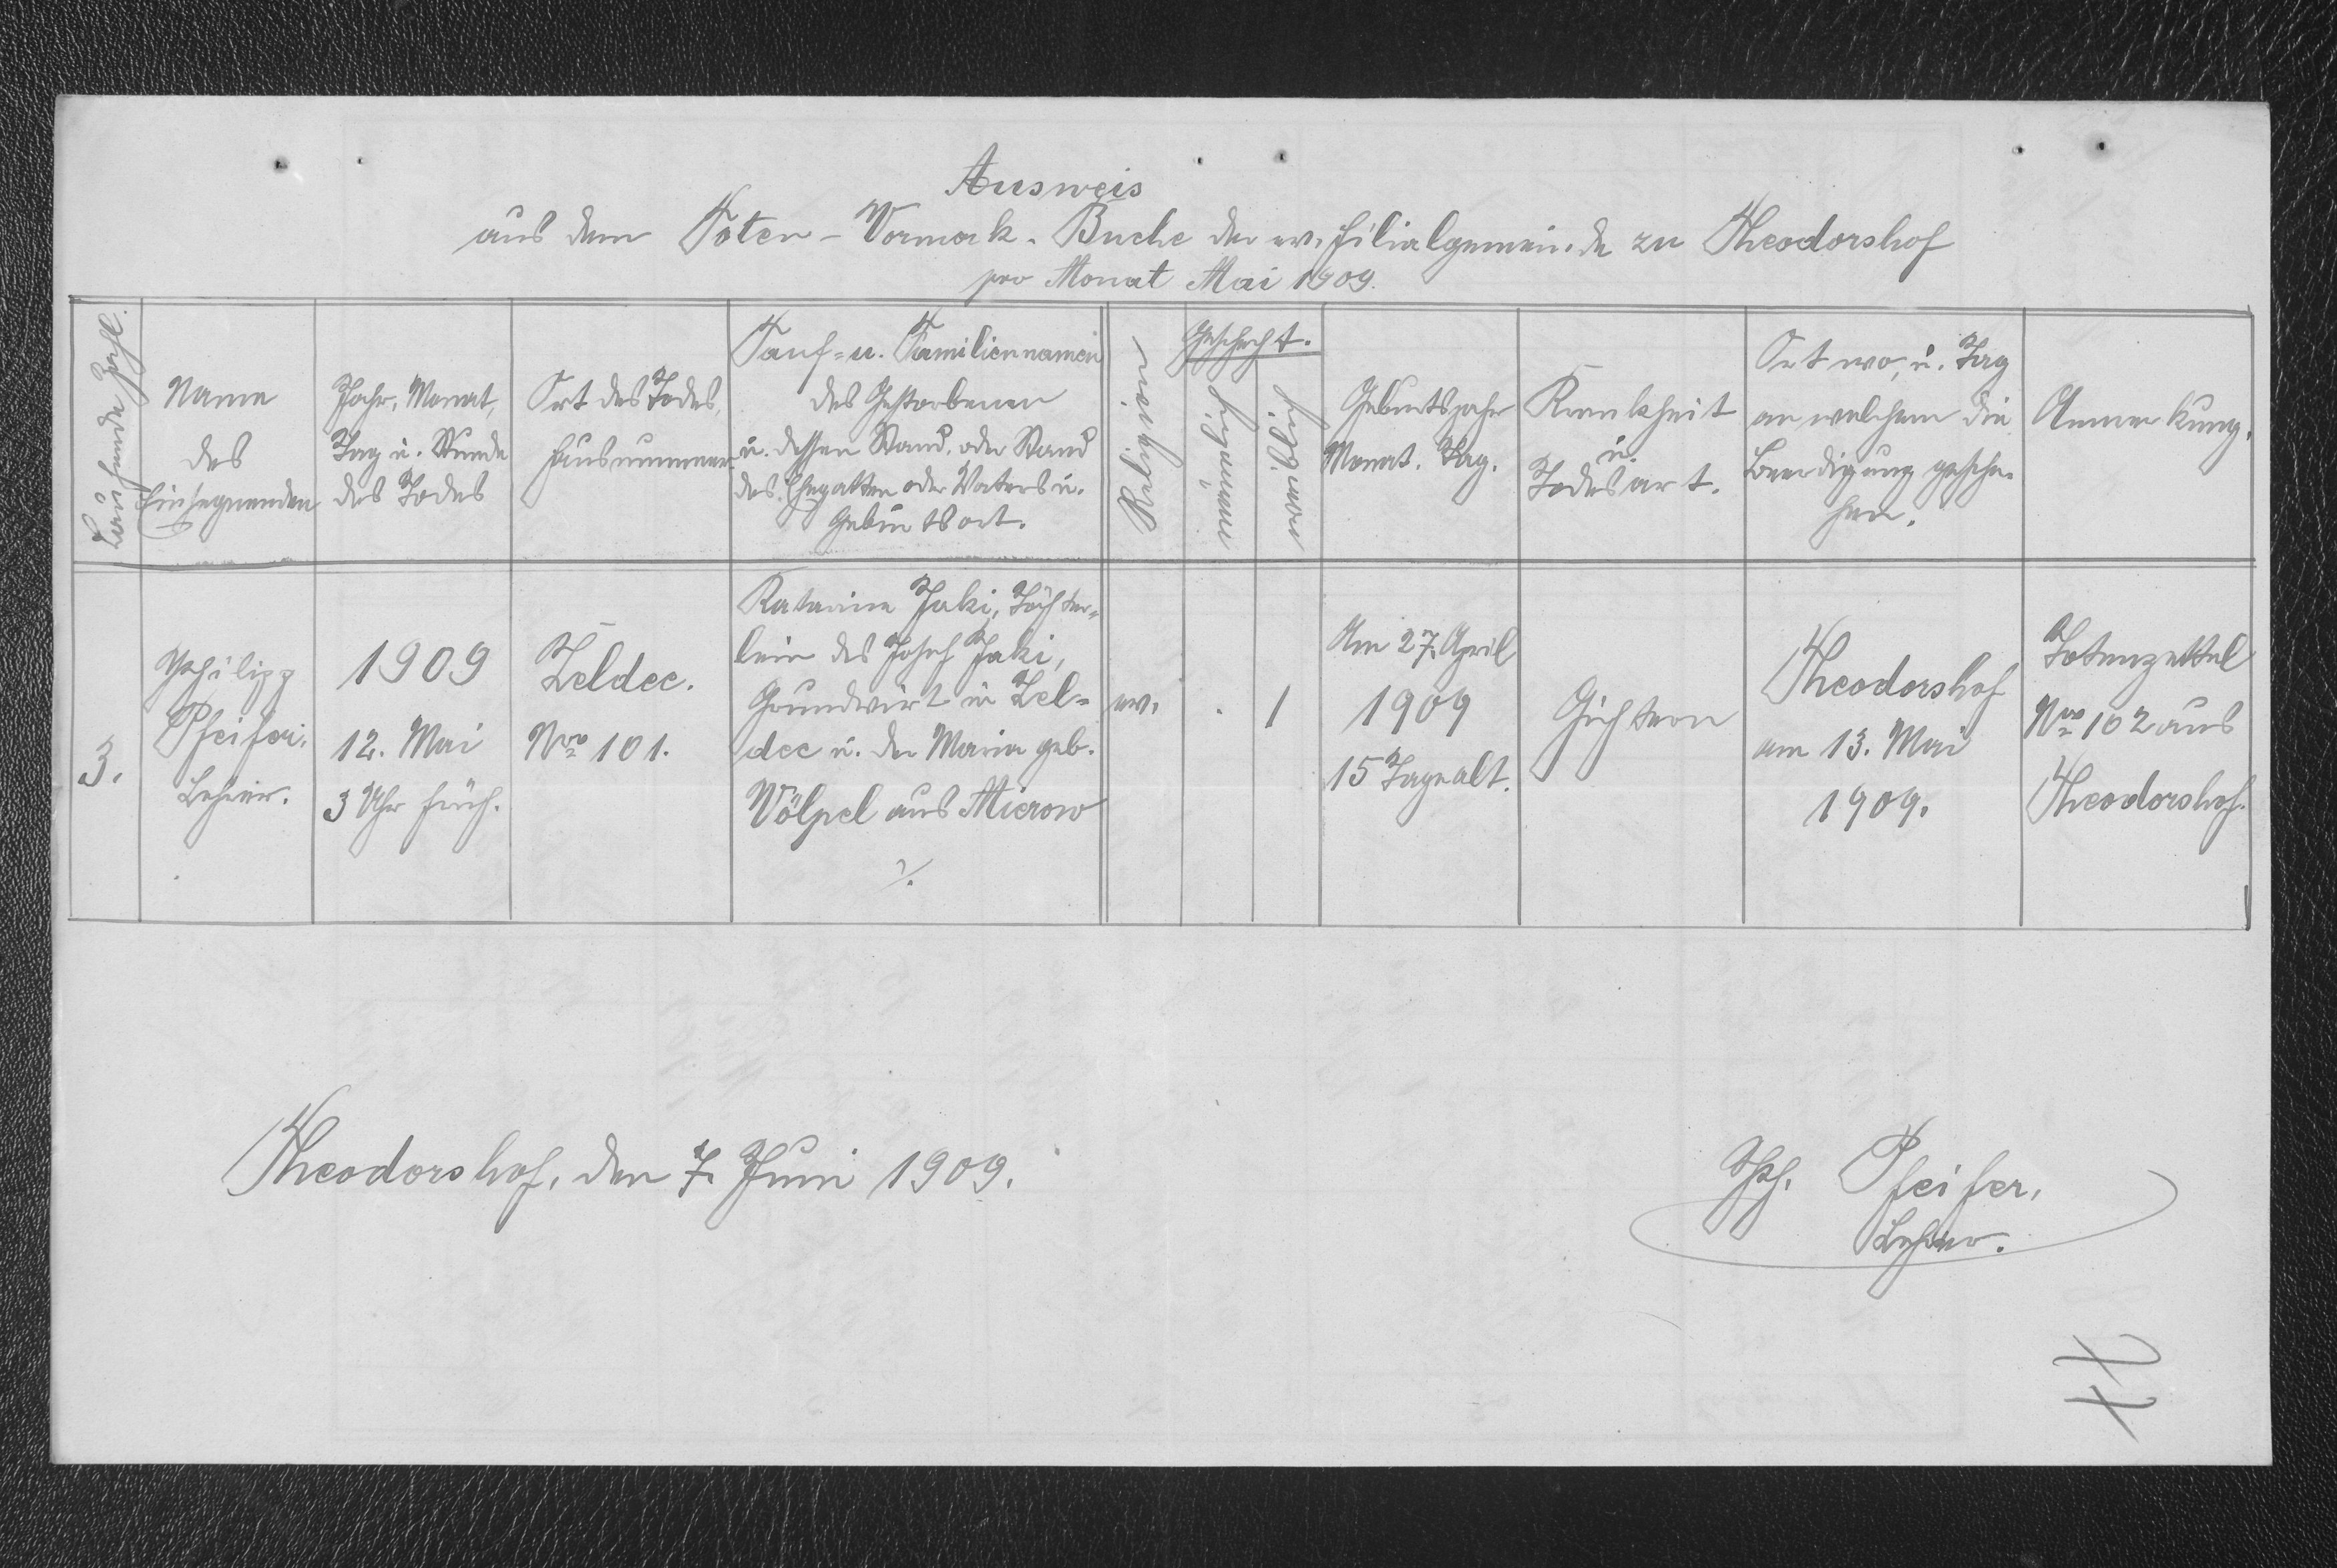 Ausweis
aus dem Toten-Vormerk-Buche der ev. Filialgemeinde zu Theodorshof
pro Monat Mai 1909.
Laufende Zahl.
Name
des
Einsegnenden
Jahr, Monat,
Tag u. Stunde
des Todes
Ort des Todes,
Hausnummer
Tauf- u. Familiennamen
des Gestorbenen
u. dessen Stand, oder Stand
des Ehegatten oder Vaters u.
Geburtsort.
Religion
Geschecht.
männlich
weiblich
Geburtsjahr
Monat. Tag.
Krankheit
u.
Todesart.
Ort wo, u. Tag
an welchem die
Beerdigung gesche-
hen.
Anmerkung.
3.
Philipp
Pfeifer,
Lehrer.
1909
12. Mai
3 Uhr früh.
Zeldec.
Nro 101.
Katarina Jaki, Töchter-
lein des Josef Jaki,
Grundwirt in Zel-
dec u. der Maria geb.
Völpel aus Mierow
ev.
.
1
Am 27. April
1909
15 Tage alt.
Gichtern
Theodorshof
am 13. Mai
1909.
Totenzettel
Nro 102 aus
Theodorshof.
Theodorshof, den 7. Juni 1909.
Ph. Pfeifer,
Lehrer.